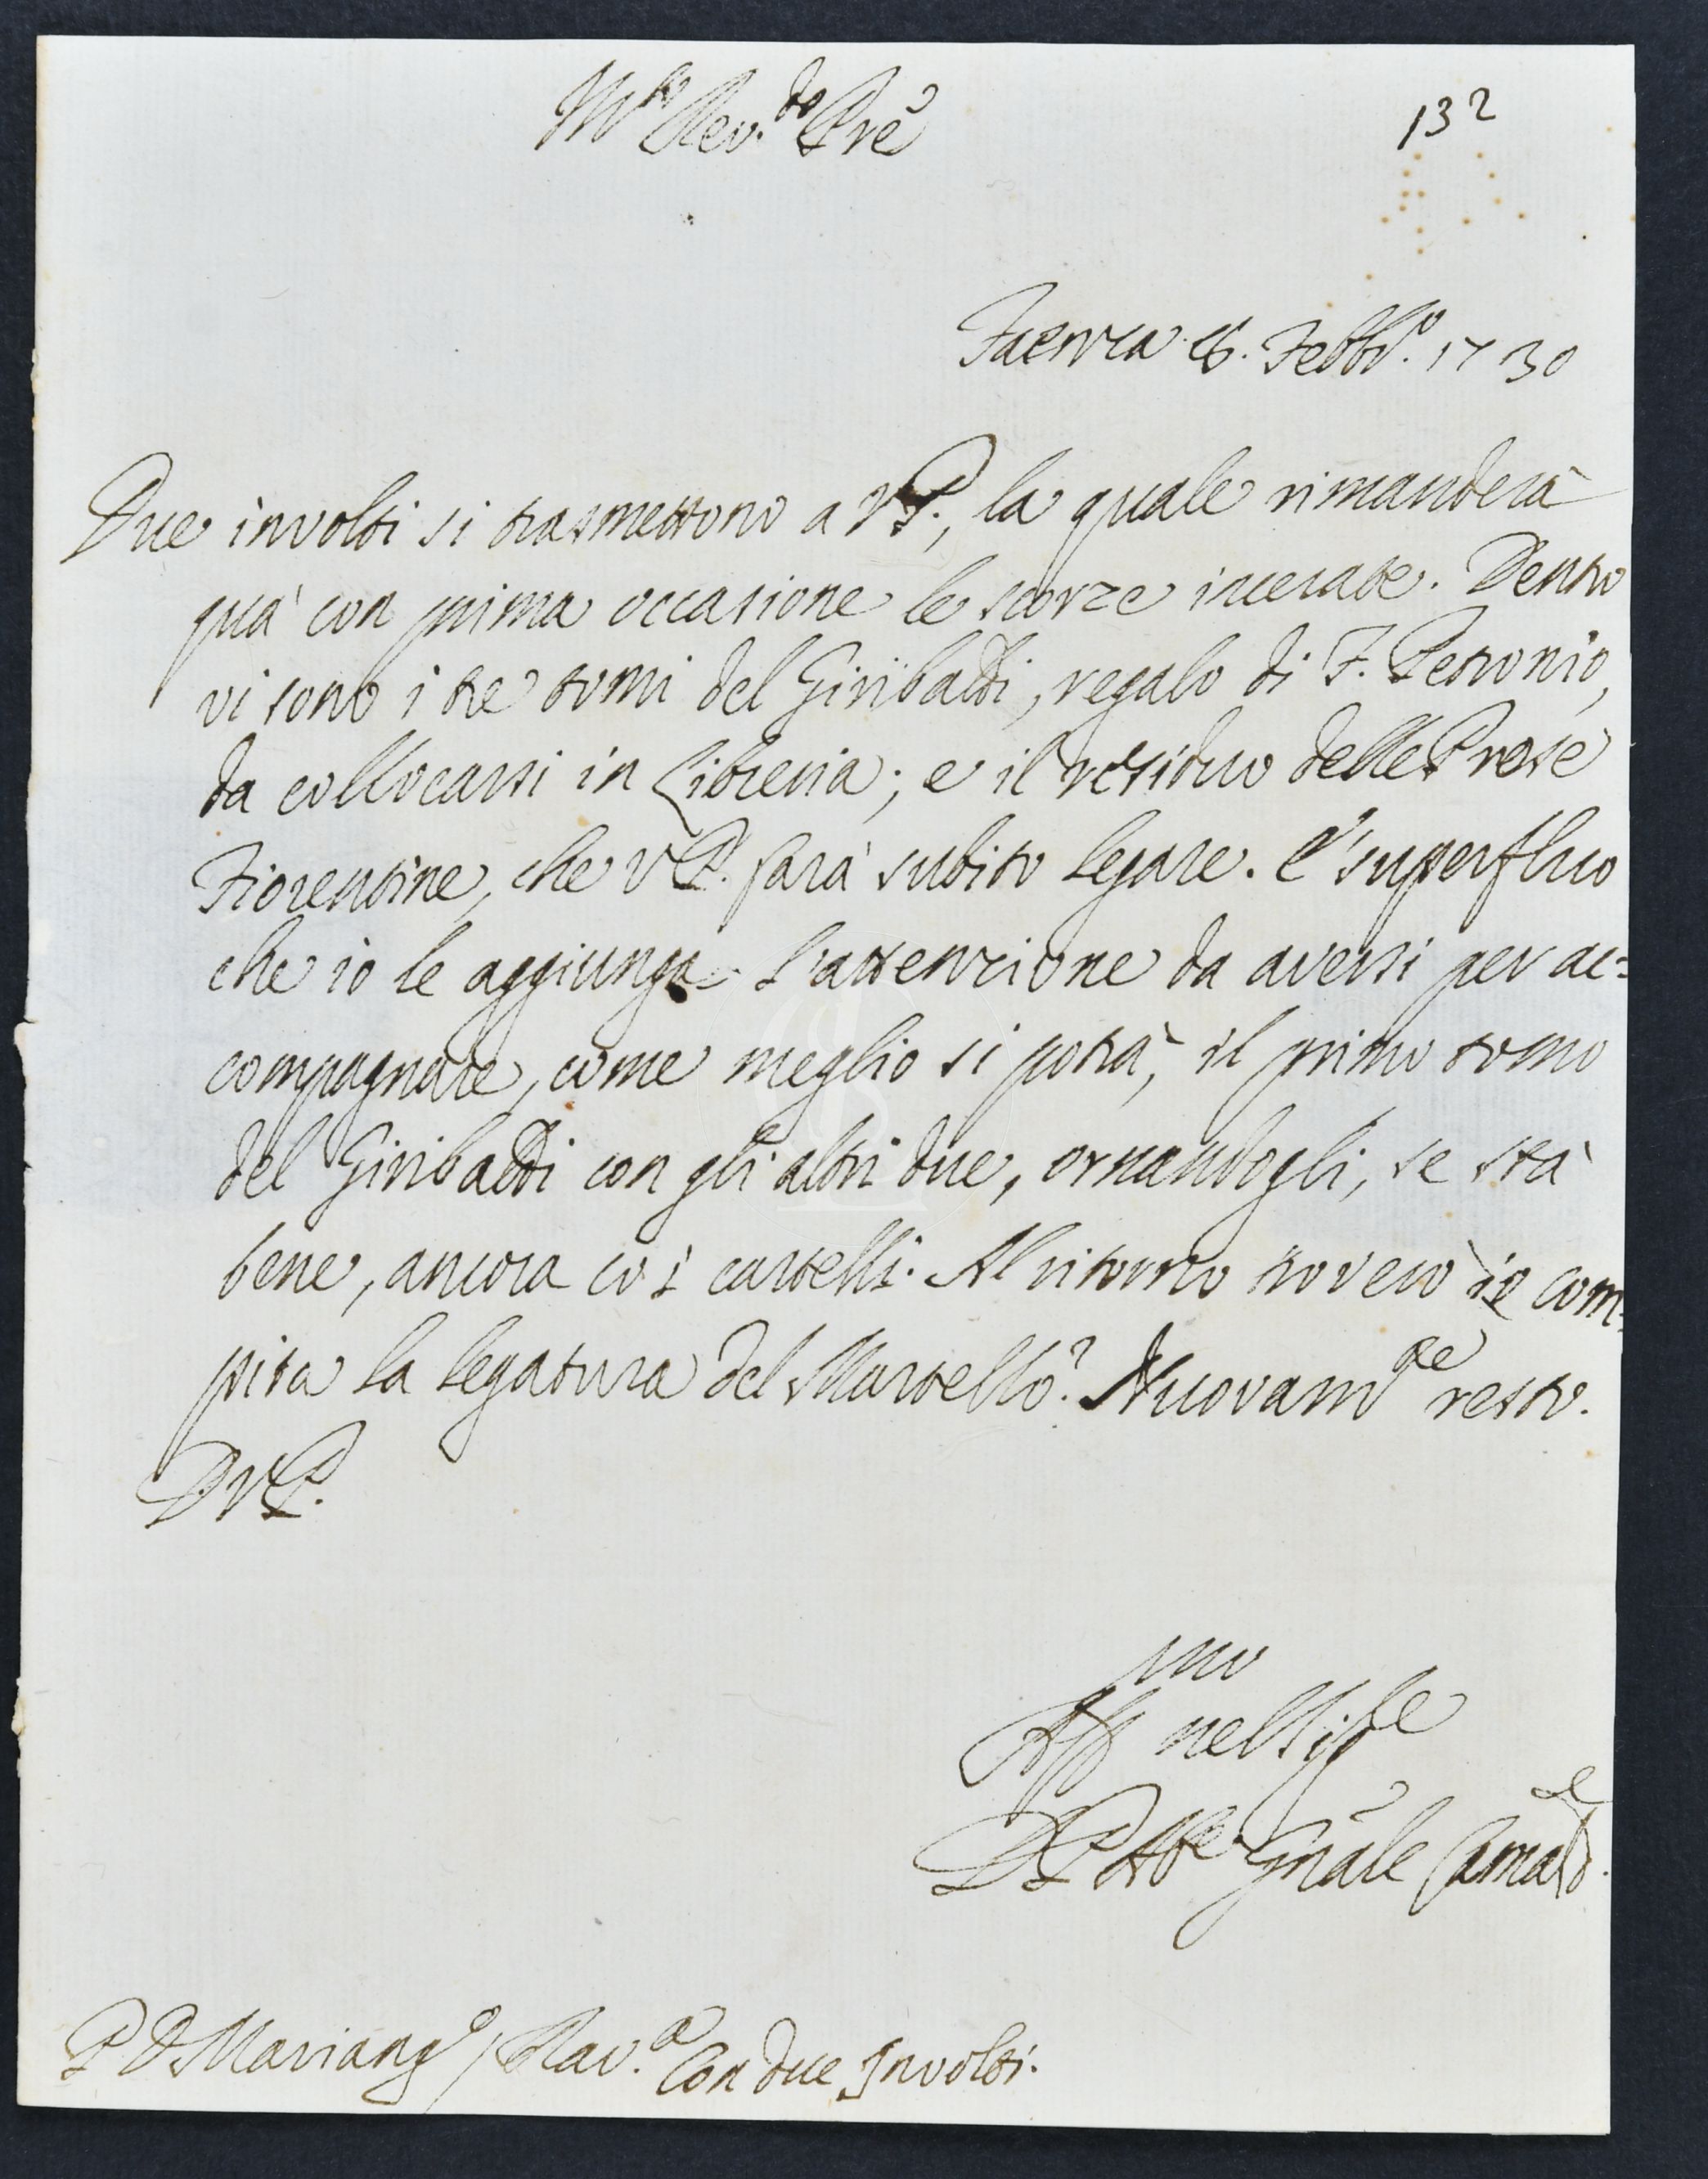 M.to Rev.do Pre
132
Faenza 26. Febbr.o 1730
Due involti si trasmettono a VP., la quale rimanderà
quà con prima occasione le scorze incerate. Dentro
vi sono i tre tomi del Giribaldi, regalo di F. Petronio,
da collocarsi in Libreria; e il residuo delle Prose
Fiorentine, che VP. farà subito legare. E' superfluo
che io le aggiunga l'attenzione da aversi per ac=
compagnare, come meglio si potrà, il primo tomo
del Giribaldi con gli altri due, ornandogli, se stà
bene, ancora co i cartelli. Al ritorno troverò io com=
pita la legatura del Martello. Nuovam.te resto.
D.VP.
Aff.mo nel Sig.re
DP Ab.e Gnāle Camald.e
P D Mariang.o / Rav.a Con due Involti.